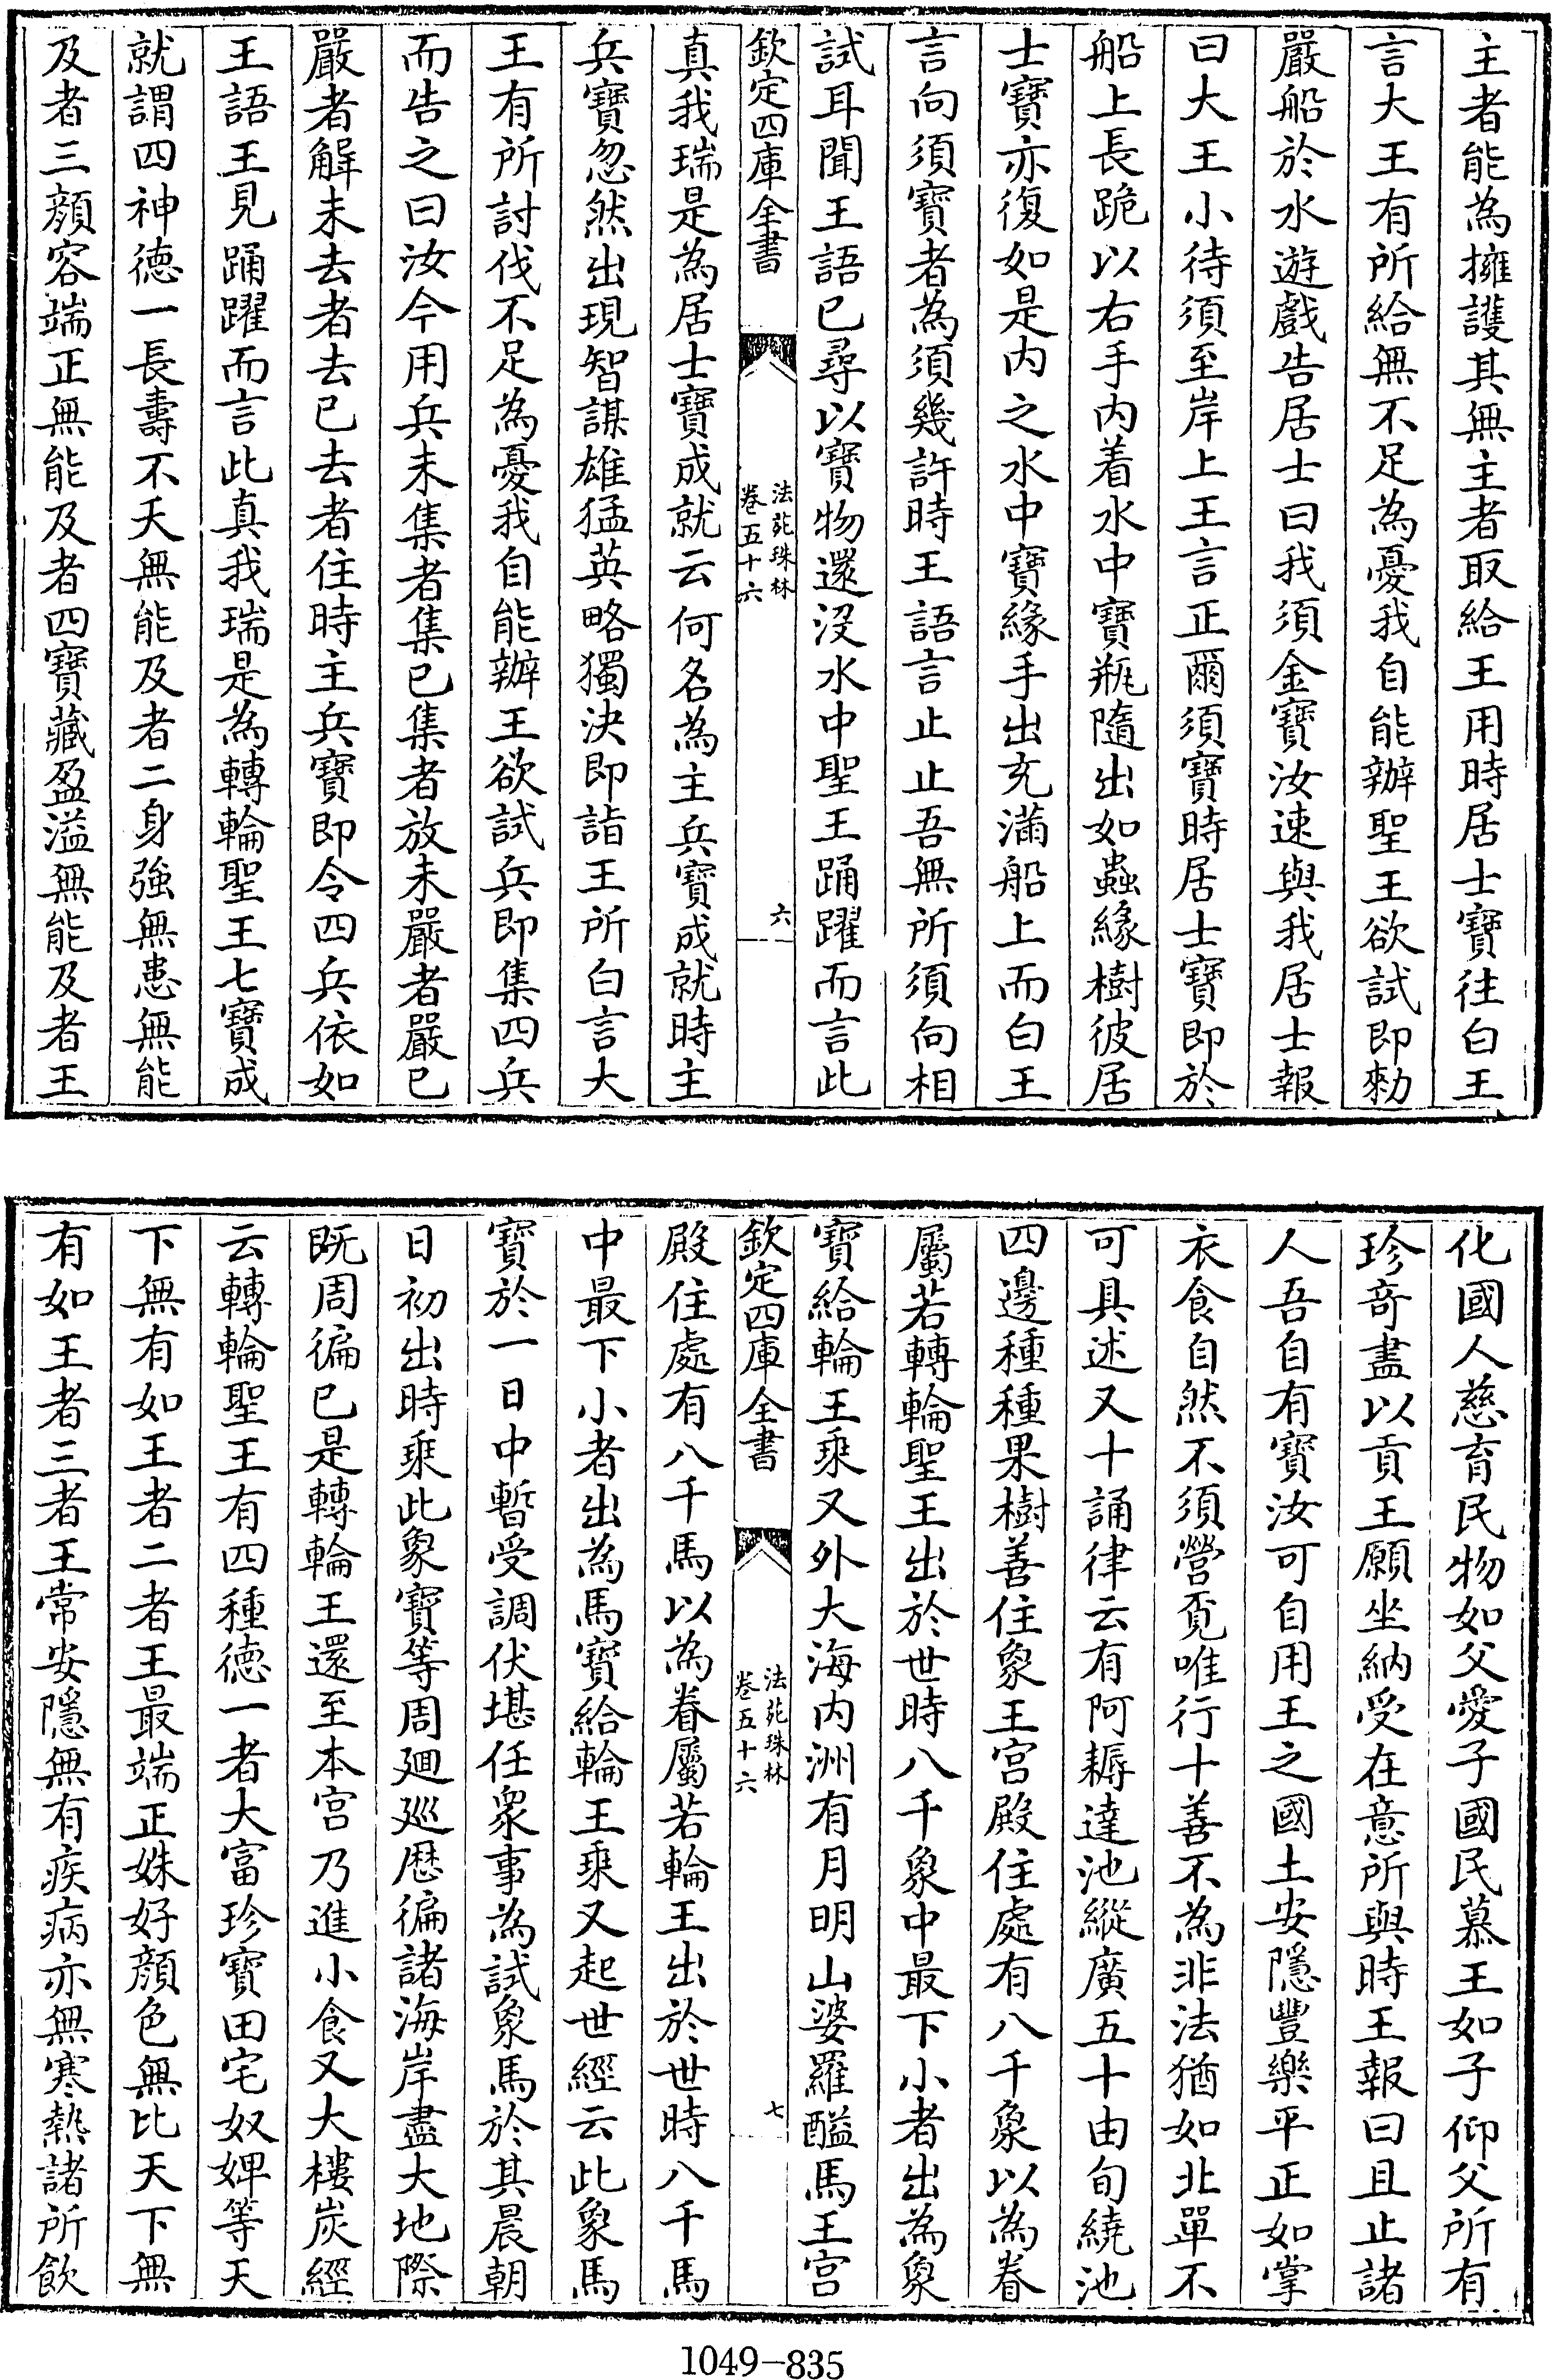 主者能為擁護其無主者取給王用時居士寶往白王
言大王有所給無不足為憂我自能辦聖王欲試即勅
嚴船於水遊戲告居士曰我須金寶汝速與我居士報
曰大王小待須至岸上王言正爾須寶時居士寶即於
船上長跪以右手内着水中寶瓶隨出如蟲緣樹彼居
士寶亦復如是内之水中寶緣手出充滿船上而白王
言向須寶者為須幾許時王語言止止吾無所須向相
試耳聞王語已尋以寶物還没水中聖王踊躍而言此
欽定四庫全書
法苑珠林
卷五十六
六
真我瑞是為居士寶成就云何名為主兵寶成就時主
兵寶忽然出現智謀雄猛英略獨決即詣王所白言大
王有所討伐不足為憂我自能辦王欲試兵即集四兵
而告之曰汝今用兵未集者集已集者放未嚴者嚴已
嚴者解未去者去已去者住時主兵寶即令四兵依如
王語王見踊躍而言此真我瑞是為轉輪聖王七寶成
就謂四神徳一長壽不夭無能及者二身強無患無能
及者三顔容端正無能及者四寶藏盈溢無能及者王
化國人慈育民物如父愛子國民慕王如子仰父所有
珍竒盡以貢王願坐納受在意所與時王報曰且止諸
人吾自有寶汝可自用王之國土安隱豐樂平正如掌
衣食自然不須營覔唯行十善不為非法猶如北單不
可具述又十誦律云有阿耨達池縱廣五十由旬繞池
四邊種種果樹善住象王宫殿住處有八千象以為眷
屬若轉輪聖王出於世時八千象中最下小者出為象
寶給輪王乗又外大海内洲有月明山婆羅醯馬王宫
欽定四庫全書
法苑珠林
卷五十六
七
殿住處有八千馬以為眷屬若輪王出於世時八千馬
中最下小者出為馬寶給輪王乗又起世經云此象馬
寶於一日中暫受調伏堪任衆事為試象馬於其晨朝
日初出時乗此象寶等周迴巡歴徧諸海岸盡大地際
既周徧已是轉輪王還至本宫乃進小食又大樓炭經
云轉輪聖王有四種徳一者大富珍寶田宅奴婢等天
下無有如王者二者王最端正姝好顔色無比天下無
有如王者三者王常安隱無有疾病亦無寒熱諸所飲
1049-835